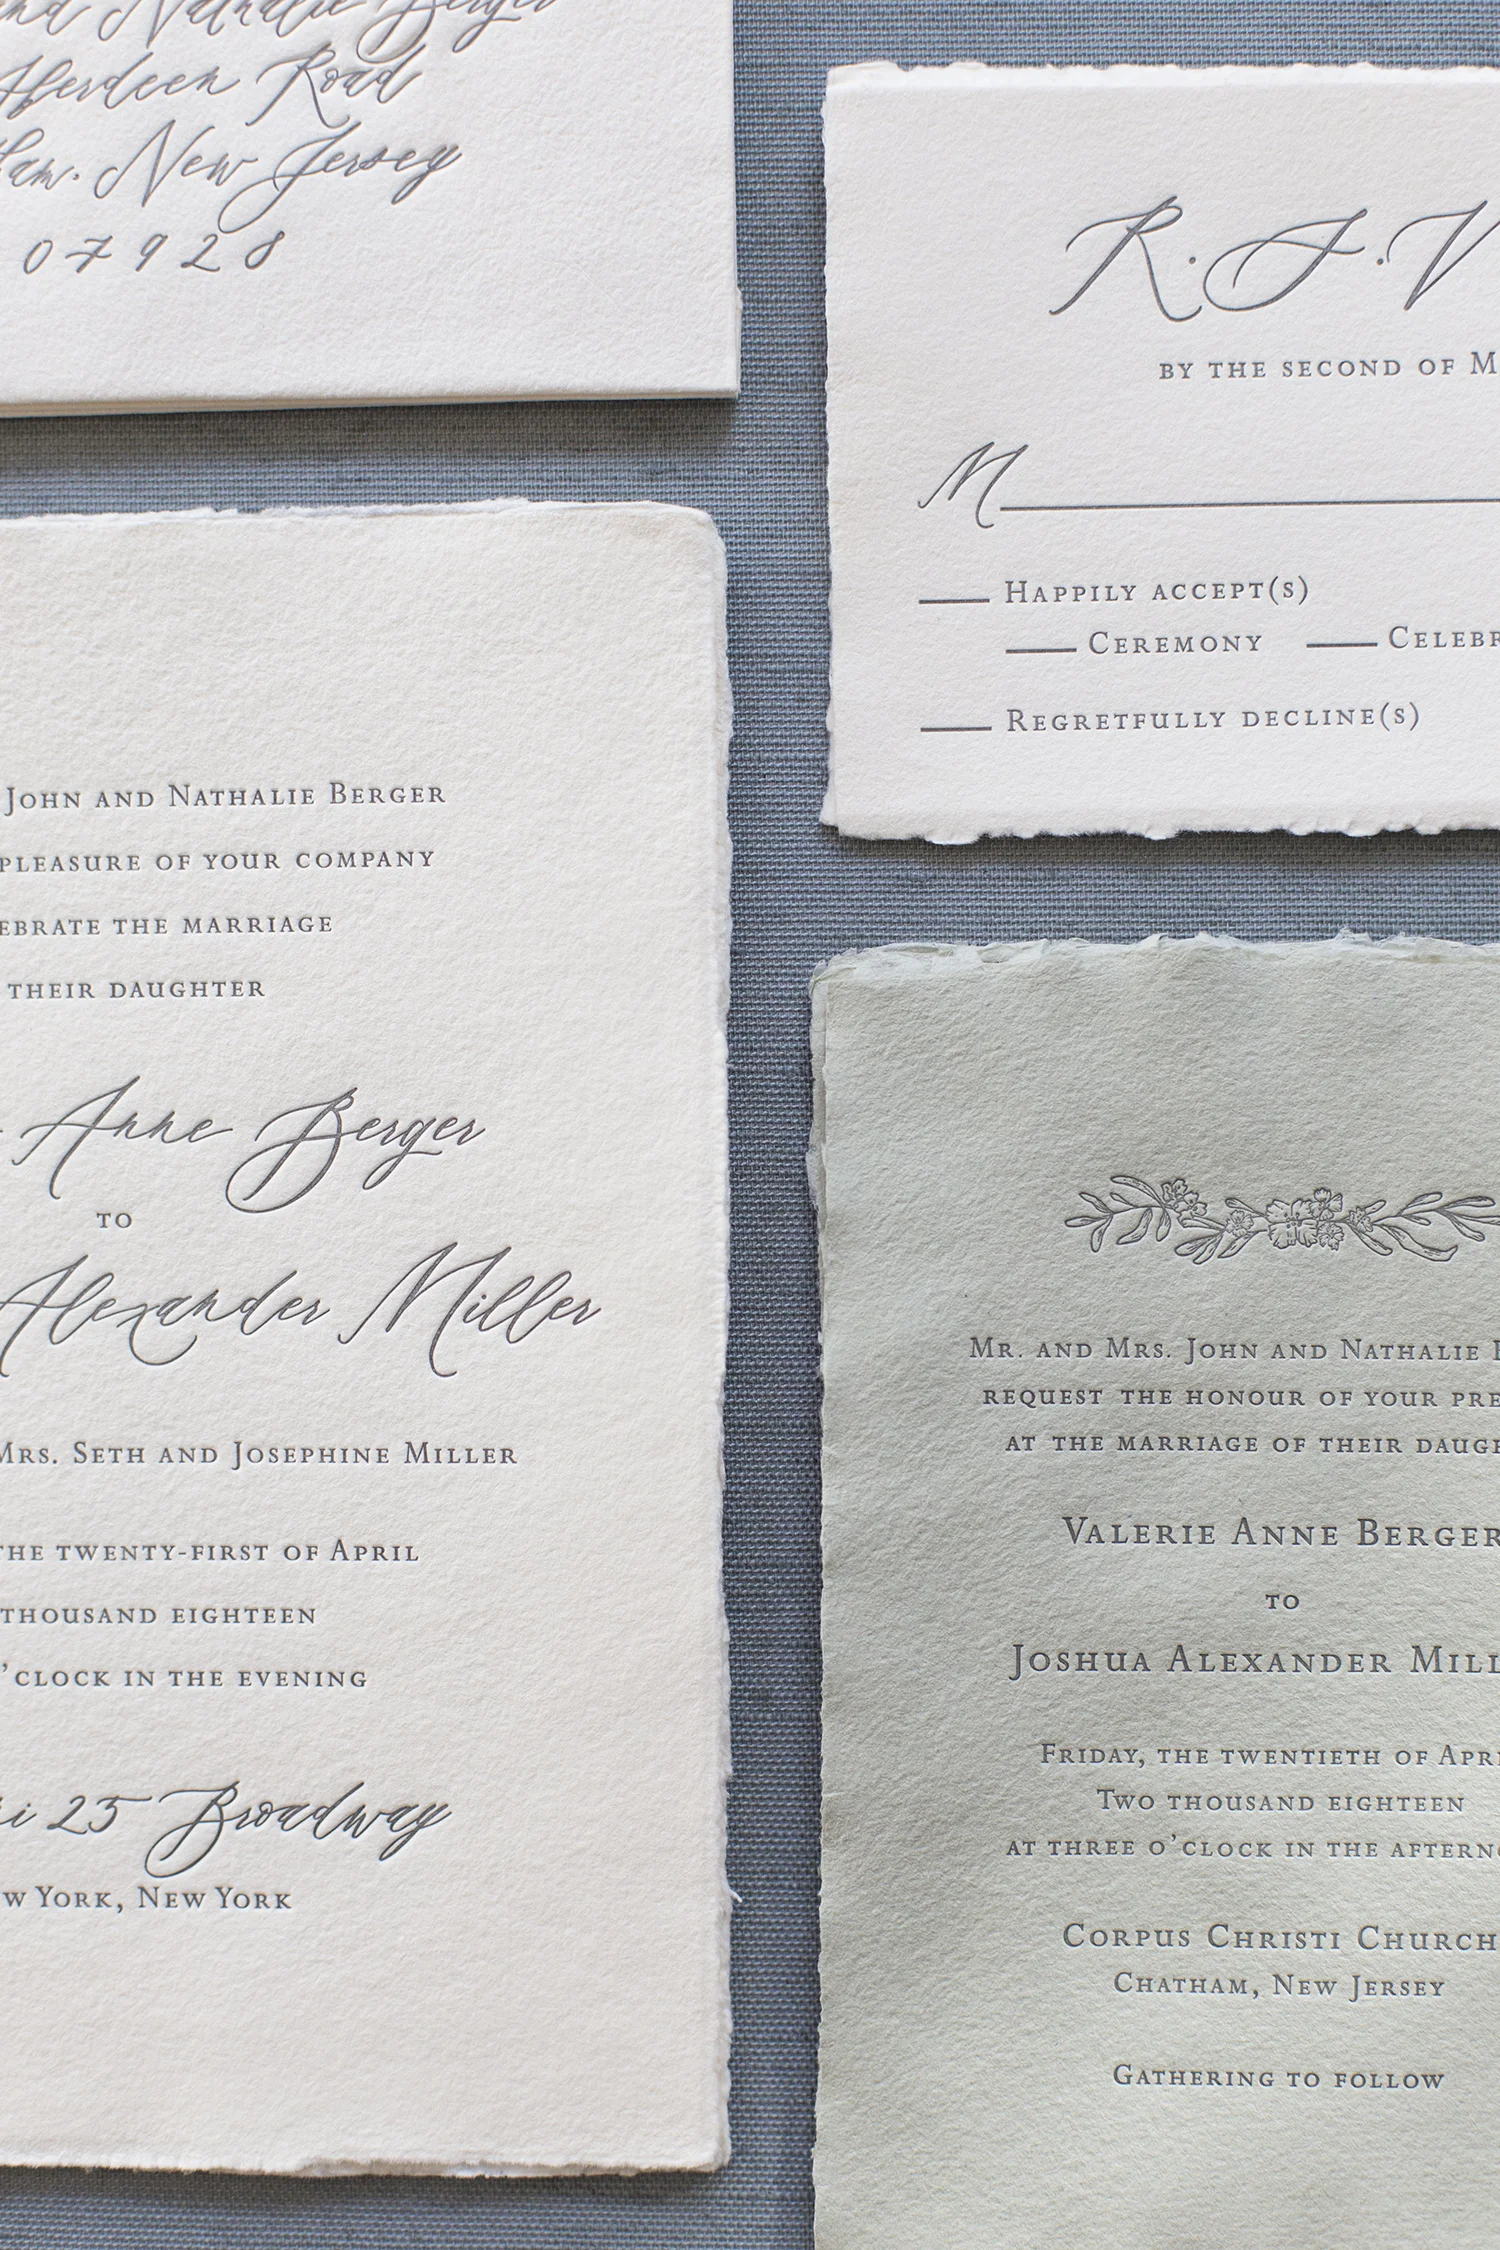 and Nathalie Berger
Aberdeen Road
New Jersey
07928
R.S.V
BY THE SECOND OF
M
HAPPILY ACCEPT(S)
CEREMONY
REGRETFULLY DECLINE(S)
JOHN AND NATHALIE BERGER
PLEASURE OF YOUR COMPANY
THE MARRIAGE
THEIR DAUGHTER
Anne Berger
TO
Alexander Miller
MRS. SETH AND JOSEPHINE MILLER
THE TWENTY-FIRST OF APRIL
THOUSAND EIGHTEEN
O'CLOCK IN THE EVENING
25 Broadway
YORK, NEW YORK
MR. AND MRS. JOHN AND NATHALIE
REQUEST THE HONOUR OF YOUR
AT THE MARRIAGE OF THEIR
VALERIE ANNE BERGER
TO
JOSHUA ALEXANDER
FRIDAY, THE TWENTIETH OF
TWO THOUSAND EIGHTEEN
AT THREE O'CLOCK IN THE
CORPUS CHRISTI CHURCH
CHATHAM, NEW JERSEY
GATHERING TO FOLLOW